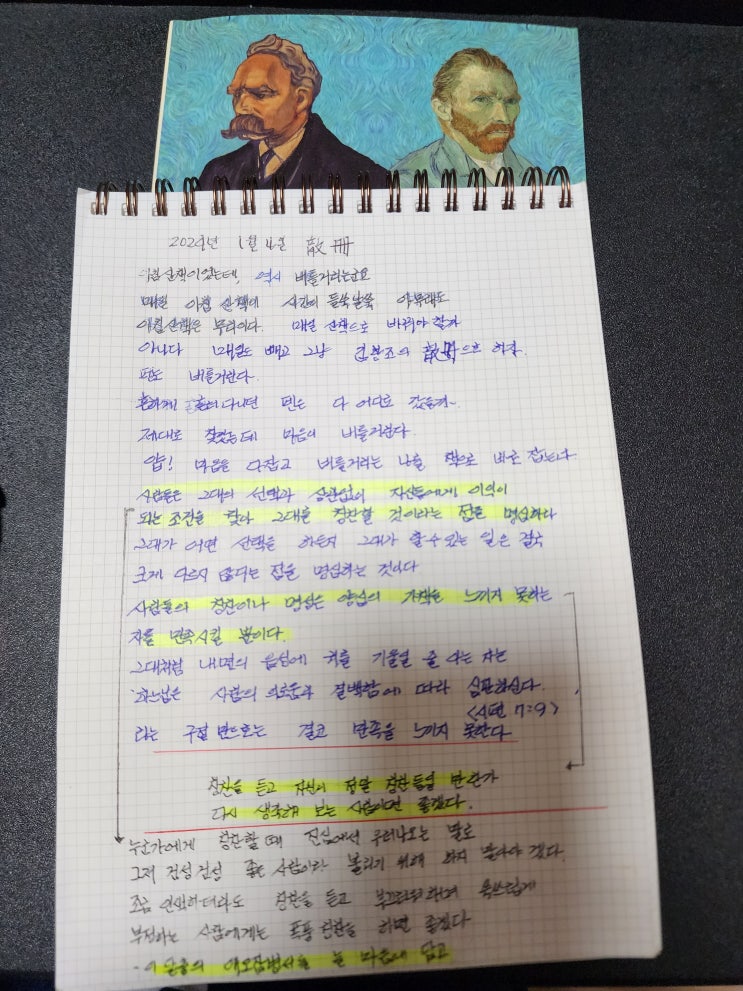 2024년 1월 4일 散冊
아침산책이었는데, 역시 버틀거리는군요
매일 아침 산책에 시간이 들쑥날쑥 아무래도
아침산책은 무리이다. 매일 산책으로 바꿔야 할까
아니다 매일도 빼고 그냥 의 散책으로 하자.
펜도 버틀거린다.
흔하게 다니던 펜은 다 어디로 갔을까~
제대로 찾았는데 마음이 버틀거린다.
얍! 마음을 다잡고 버틀거리는 나를 책으로 바로 잡는다
사람들은 그대의 선택과 상관없이 자신들에게 이익이
되는 조건을 찾다 그대를 칭찬할 것이라는 점을 명심하라
그대가 어떤 선택을 하든지 그대가 할 수 있는 일은 결국
크게 다르지 않다는 점을 명심하는 것이다
사람들의 칭찬이나 명성은 양심의 가책을 느끼지 못하는
자를 만족시킬 뿐이다.
그대처럼 내면의 음성에 귀를 기울일 줄 아는 자는
하느님은 사람의 의로움과 결백함에 따라 심판하신다.
<시편 7:9>
라는 구절 만으로는 결코 만족을 느끼지 못한다
칭찬을 듣고 자신이 정말 칭찬들을 만한가
다시 생각해 보는 사람이면 좋겠다.
누군가에게 칭찬할 때 진심에서 우러나오는 말로
그저 건성건성 좋은 사람이라 불리기 위해 하지 말아야 겠다.
조금 인색하더라도 칭찬을 듣고 부끄러워하며 욕쓰럽게
부정하는 사람에게는 폭풍 칭찬을 하면 좋겠다